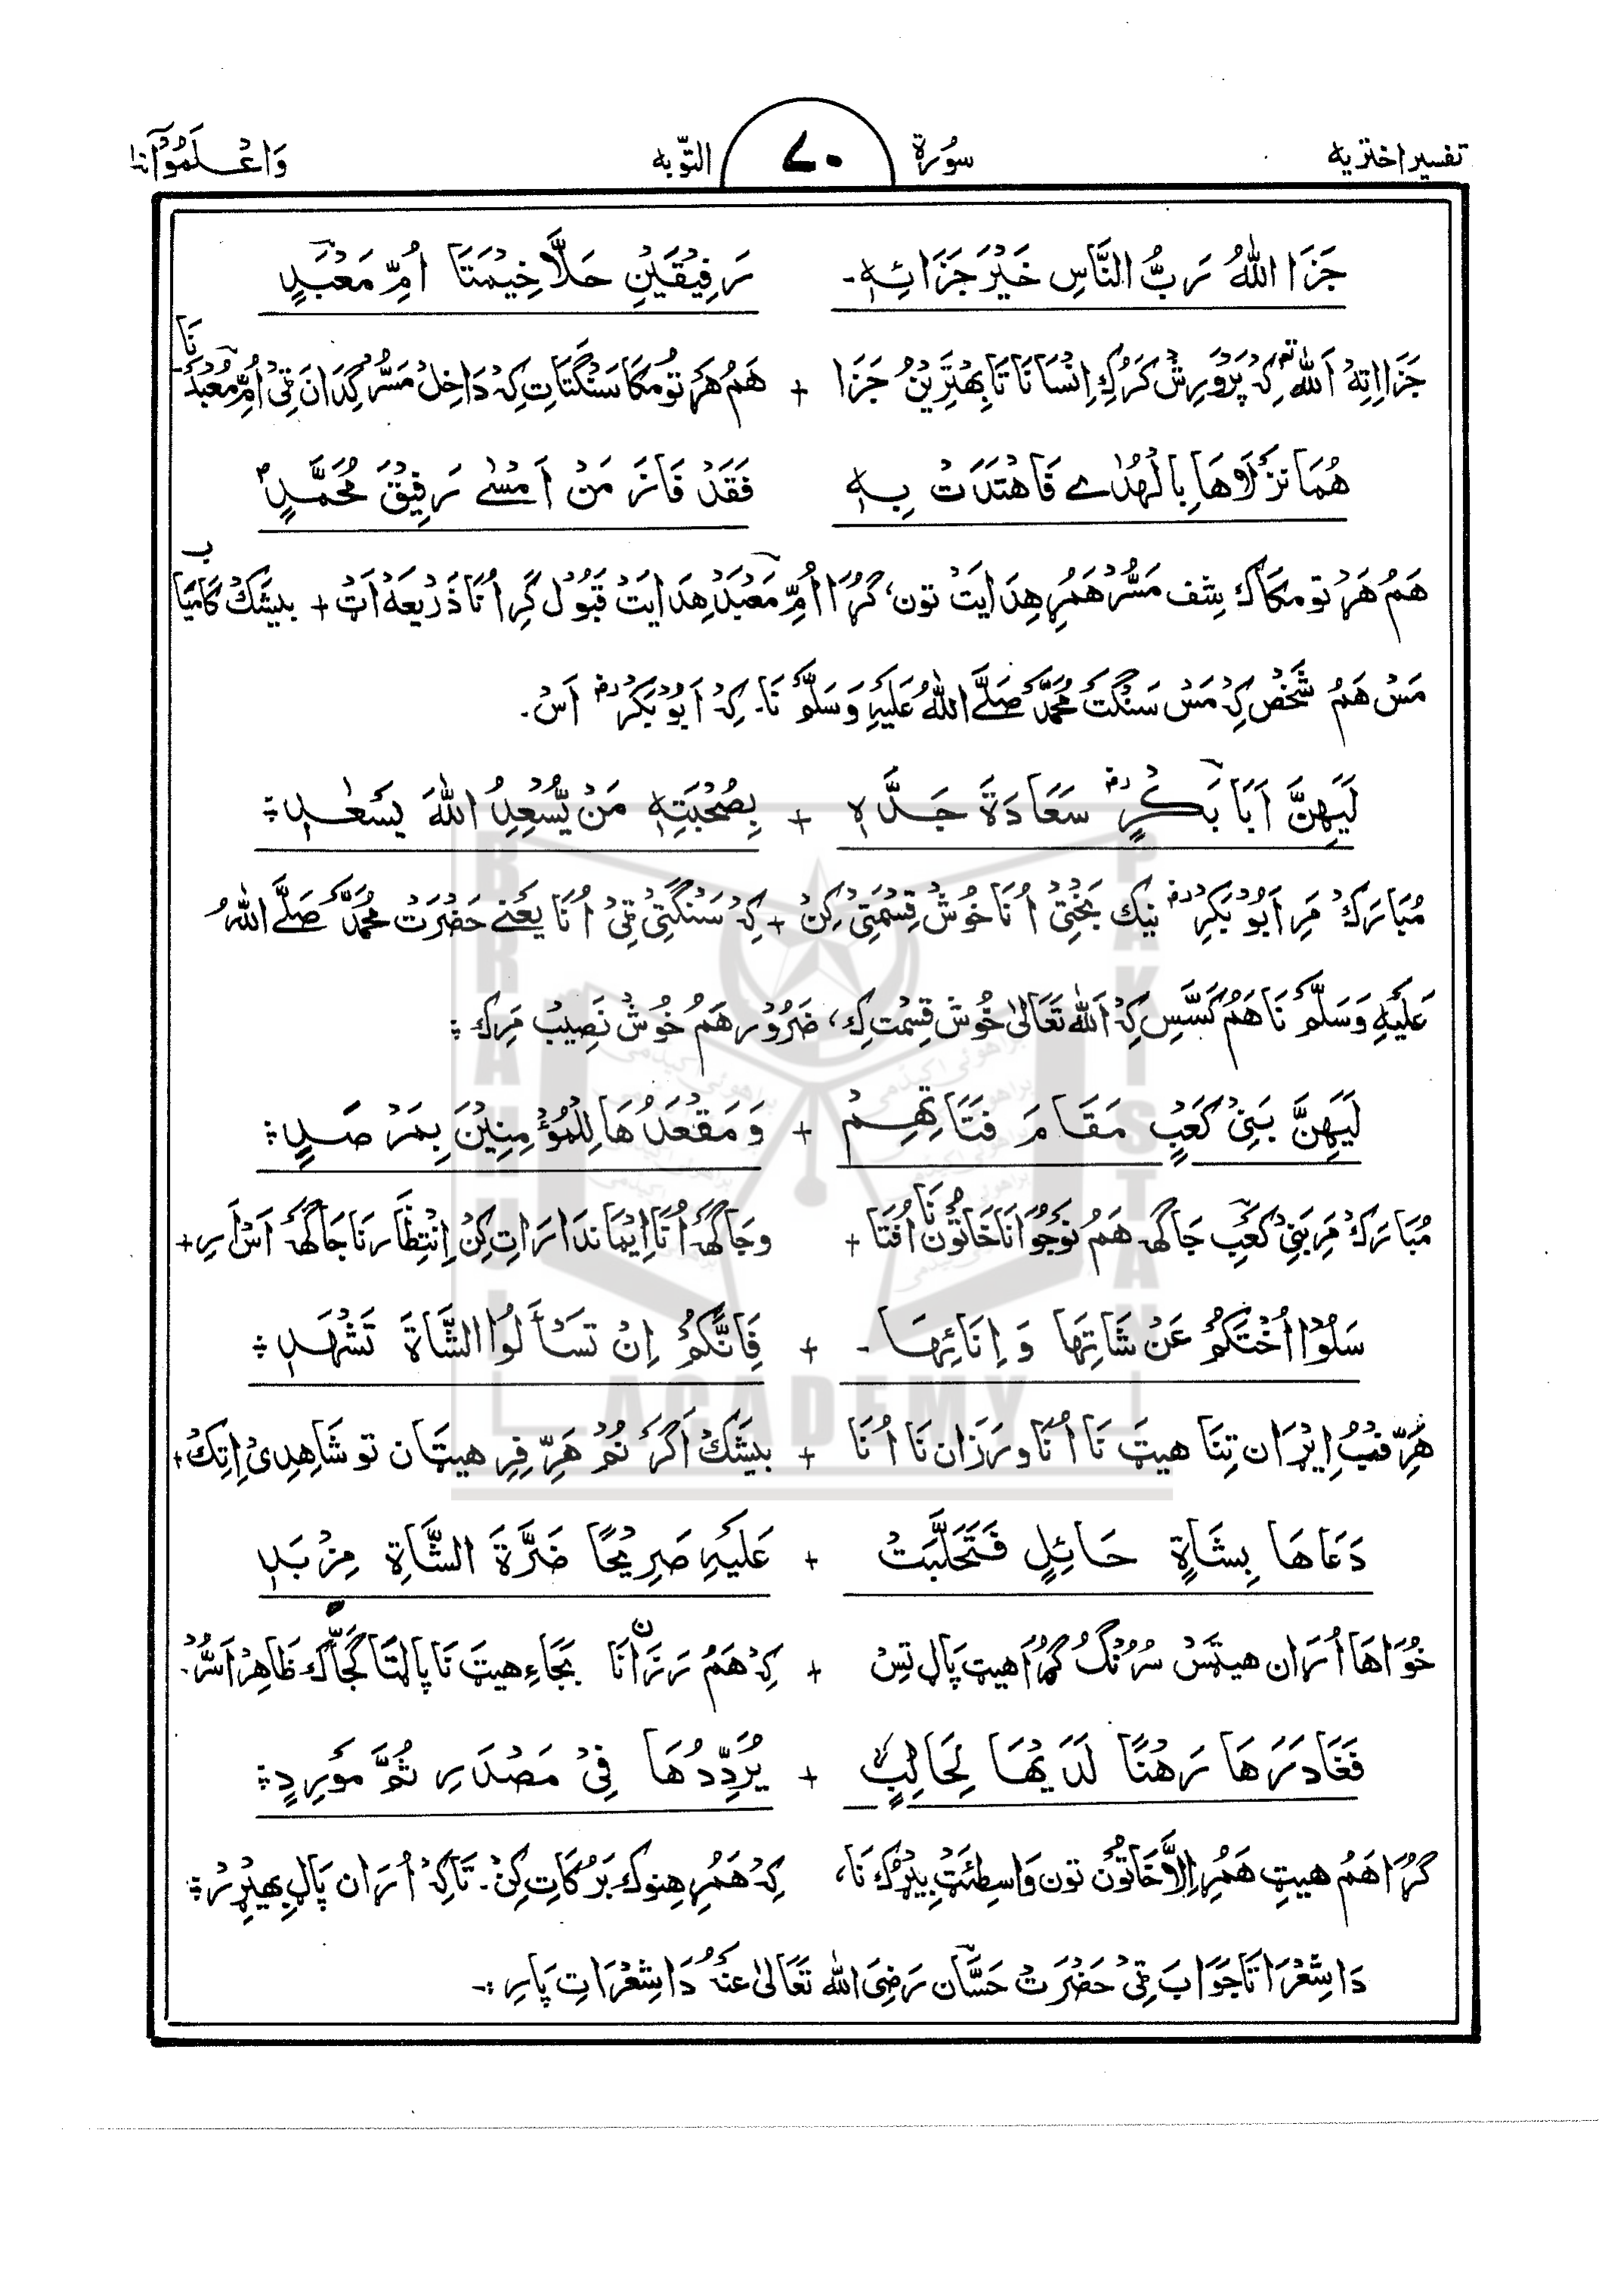 تفسیر اختریه ۷۰ سُورۃ التّوبه وَاعْلَمُوْآ١٠
جَزَا اللّٰهُ رَبُّ النَّاسِ خَيْرَ جَزَائِهٖ۔ رَفِيْقَيْنِ حَلَّا خِيْمَتَا اُمِّ مَعْبَدٖ
جَزَا اِتِهْ اَللّٰه تعہ كِهْ پَرْوَرِشْ كَرُكِ اِنْسَانَا تَا بِهْتَرِيْنُ جَزَا + هَمُ هَرْتُومَكَا سَنْگَتَاتِ كِهْ دَاخِلْ مَسُّرْ كِدَانَ ٹِیْ اُمِّ مَعْبَدْ نَا
هُمَا نَزَلَاهَا بِالْهُدٰے فَاهْتَدَتْ بِهٖ فَقَدْ فَازَ مَنْ اَمْسٰے رَفِيْقَ مُحَمَّدٍ
هَمُ هَرْتُومَكَاكْ شِف مَسُّرْ هَمُرِ هِدَايَتْ تون، گُرَا اُمِّ مَعْبَدْ هِدَايَتْ قَبُوْل كَرِ اُنَا ذَرِيْعَهْ اَٹْ + بيشَكْ كَامْيَاب
مَسْ هَمُ شَخْصْ كِهْ مَسْ سَنْگَتْ مُحَمَّدْ صَلَّے اللّٰهُ عَلَيْهِ وَسَلَّمْ نَا۔ كِهْ اَبُوْ بَكَرْ رضہ اَسْ۔
لَيَهِنَّ اَبَا بَكْرٍ رضہ سَعَادَةَ جَدَّهٖ + بِصُحْبَتِهٖ مَنْ يُّسْعِدِ اللّٰهَ يَسْعَدٖ ؞
مُبَارَكْ مَرِ اَبُوْ بَكَرِ رضہ نيك بَخْتِیْ اُنَا خُوْشْ قِسْمَتِیْ كِنْ + كِهْ سَنْگَتِیْ ٹِیْ اُنَا يَعْنے حَضْرَتْ مُحَمَّدْ صَلَّے اللّٰهُ
عَلَيْهِ وَسَلَّمْ نَا هَمُ كَسَّسِ كِهْ اَللّٰه تَعَالٰى خُوْشْ قِسْمَتْ كِ، ضَرُوْر هَمُ خُوْشْ نَصِيْبْ مَرِكْ ؞
لَيَهِنَّ بَنِیْ كَعْبٍ مَقَامَ فَتَاتِهِمْ + وَمَقْعَدُهَا لِلْمُؤْمِنِيْنَ بِمَرْصَدٖ ؞
مُبَارَكْ مَرِ بَنِیْ كَعْبِ جَاگَهْ هَمُ نَوْجُوَانَا خَاتُوْن نَا اُفْتَا + وجَاگَهْ اُنَا اِيْمَاندَارَاتِ كِنْ اِنْتِظَارنَا جَاگَهْ اَسْ اَرِ +
سَلُوْا اُخْتَكُمْ عَنْ شَاتِهَا وَاِنَائِهَا۔ + فَاِنَّكُمْ اِنْ تَسْأَلُوا الشَّاةَ تَشْهَدٖ ؞
هَرِّفْبُ اِيْڑان تِنَا هيٹ نَا اُنَا و رَزَان نَا اُنَا + بيشَكْ اَگَرْ نُمْ هَرِّفِرِ هيٹَان تو شَاهِدِیْ اِتِكْ +
دَعَاهَا بِشَاةٍ حَائِلٍ فَتَحَلَّبَتْ + عَلَيْهِ صَرِيْحًا ضَرَّةَ الشَّاةِ مِزْبَدٖ
خُوَاهَا اُرَان هيٹَسْ سُرُنْگْ گُرَا هيٹ پَال تِسْ + كِهْ هَمُ رَزَانَانَ بَجَاءِ هيٹ نَا پالٹَا گَجَّاكْ ظَاهِرْ اَسُّرْ۔
فَغَادَرَهَا رَهْنًا لَدَيْهَا لِحَالِبٍ + يُرَدِّدُهَا فِیْ مَصْدَرٍ ثُمَّ مَوْرِدٍ ؞
گُرَا هَمُ هيٹِ هَمُرِ اِلَّا خَاتُوْن تون وَاسِطَئَٹْ بِيْرُكْ نَا، كِهْ هَمُرِ هِنوكْ بَرْكَاتِ كِنْ۔ تَاكِهْ اُرَان پَالِ بِهِيْرِرْ ؞
دَا شِعْرَاتَا جَوَابَ ٹِیْ حَضْرَتْ حَسَّان رَضِیَ اللّٰه تَعَالٰى عَنْهُ دَا شِعْرَاتِ پَارِ :۔